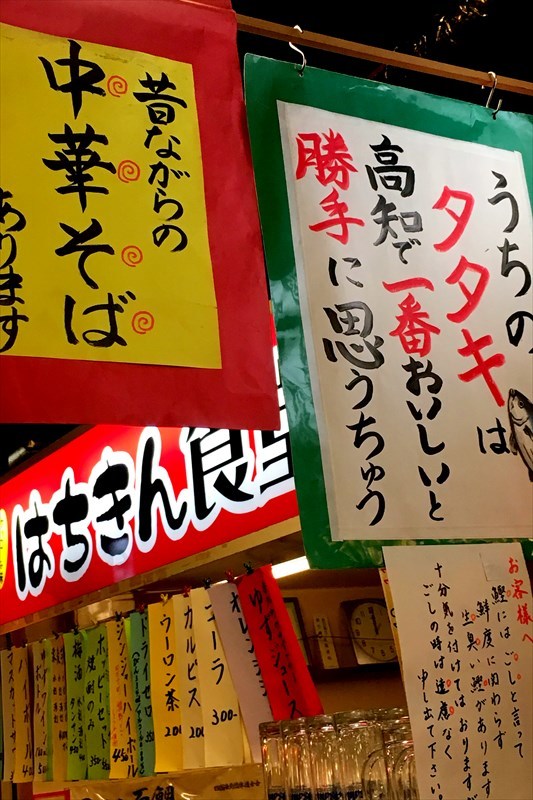 昔ながらの
中華そば
あります
うちの
タタキは
高知で一番おいしいと
勝手に思うちゅう
はちきん食堂
お客様へ
鰹には ごしと言って
鮮度に関わらず
生臭い鰹があります
十分気を付けてはおりますが
ごしの時は遠慮なく
申し出て下さい
ゆずジュース
オレンジ
コーラ
300-
カルピス
200
ウーロン茶
200
ドライゼロ
ジンジャーハイボール
450
ホッピーセット
焼酎のみ
梅酒